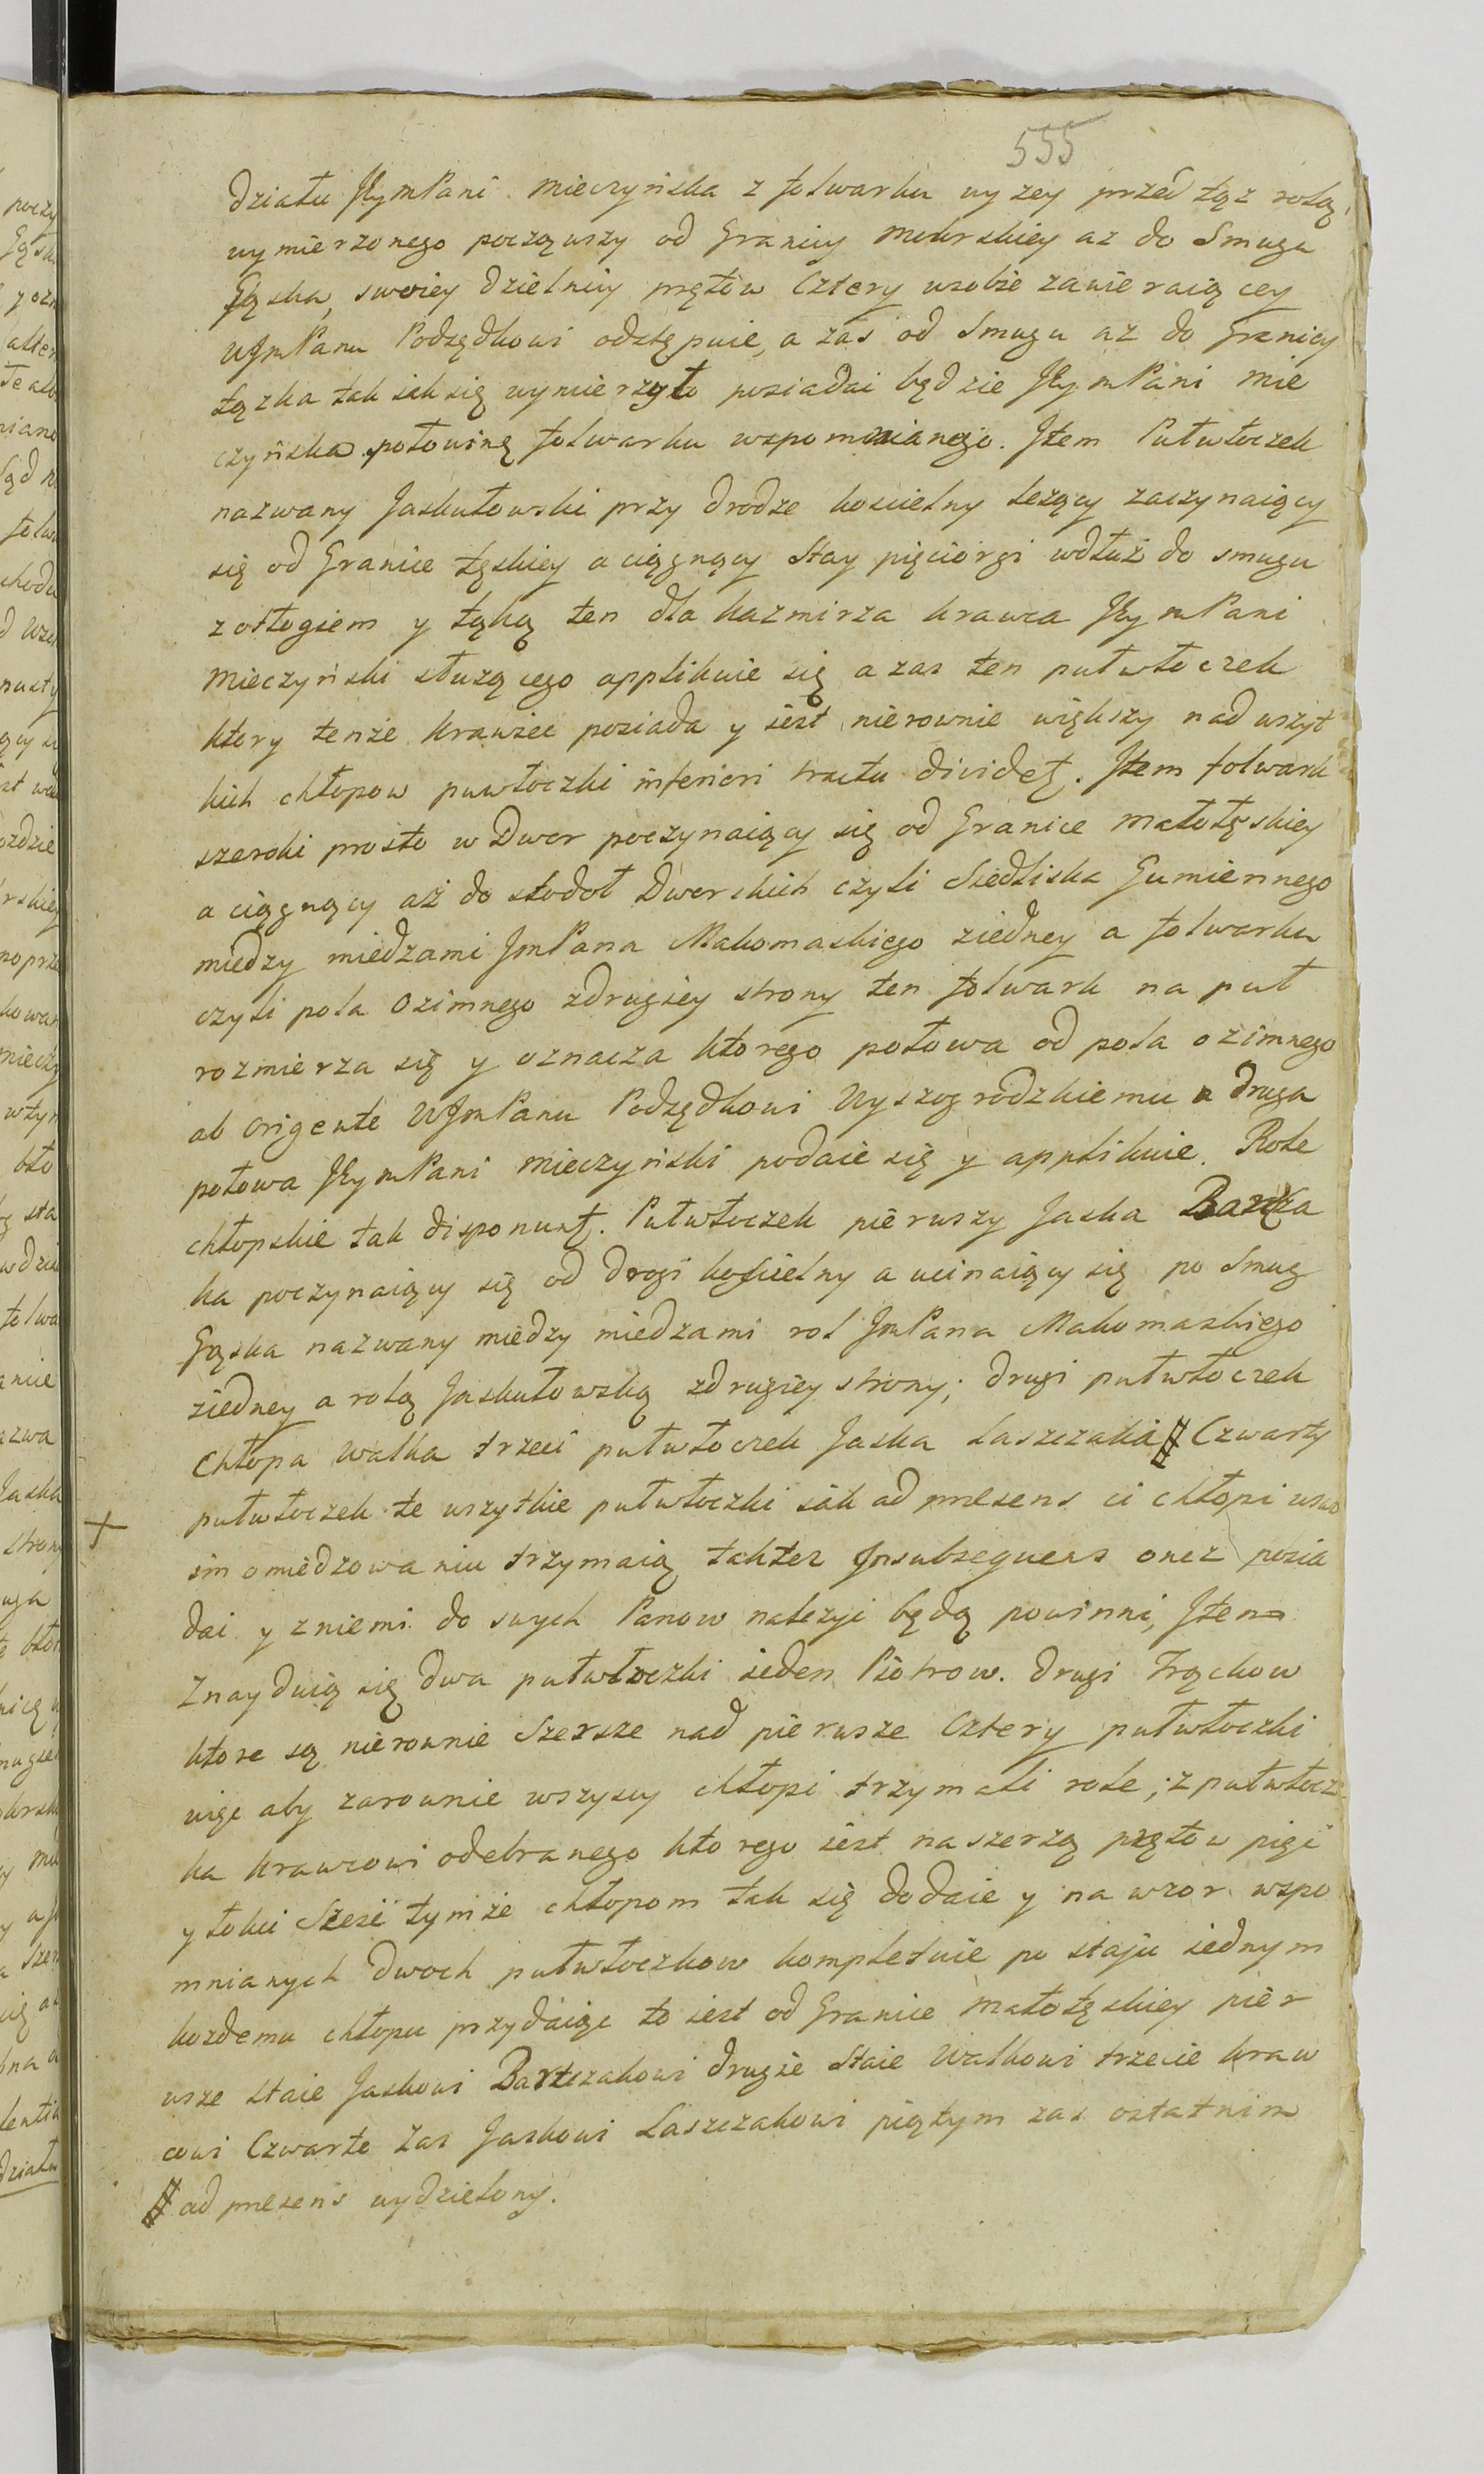 555
działu JeymPani Mieczyńska z folwarku wyzey przed tąz rolą,
wymierzonego począwszy od Granicy Mokrskiey az do Smuga
Gąska, swoiey dzielnicy prętow Cztery wsobie zawieraiącey
WJmPanu Podsędkowi odstępuie, a zaś od Smugu az do Granicy
łęzka tak iak się wymierzyło posiadai będzie JeymPani Mie
czyńska połowinę folwarku wspomnianego. Jtem Pułwłoczek
nazwany Jaskułowski przy drodze koscielny lezący zaczynaiący
się od Granice łęskiey a ciągnący Stay pięciorgi wdłuż do smugu
z osłogiem y łąką ten dla kazmirza krawca JeymPani
Mieczyński słuzącego applikuie się a zas ten pułwłoczek
ktory tenże krawiec posiada y iest nierownie większy nad wszyt
kich chłopow puwłoczki inferiori tractu dividet. Jtem folwark
szeroki prosto w Dwor poczynaiący się od Granice Małołęskiey
a ciągnący aż do stodoł Dworskich czyli Siedliska Gumiennego
miedzy miedzami JmPana Makomaskiego ziedney a folwarku
czyli pola Ozimnego zdrugiey strony ten folwark na puł
rozmierza się y oznacza ktorego połowa od pola ozimnego
ab origente WJmPanu Podsędkowi Wyszogrodzkiemu a druga
połowa JeymPani Mieczyński podaie się y applikuie. Role
chłopskie tak disponunt. Pułwłoczek pierwszy Jaska
ka poczynaiący się od drogi koscielny a ucinaiący się po Smug
Gąska nazwany miedzy miedzami rol JmPana Makomaskiego
ziedney a rolą Jaskułowską zdrugiey strony; drugi pułwłoczek
Chłopa Walka trzeci pułwłoczek Jaska Laszczaka # Czwarty
+ pułwłoczek te wszytkie pułwłoczki iak ad presens ci chłopi wswo
im omiedzowaniu trzymaią taktez Jnsubsequens onez posia
dai y zniemi do swych Panow nalezyi będą powinni, Jtem
Znayduią się dwa pułwłoczki ieden Piotrow. drugi Frąckow
ktore są nierownie Szersze nad pierwsze Cztery pułwłoczki
więc aby zarownie wszyscy chłopi trzymali role; z pułwłocz
ka krawcowi odebranego ktorego iest naszerzą prętow pięć
y łokci Sześć tymże chłopom tak się dodaie y na wzor wspo
mnianych dwoch pułwłoczkow kompletuie po staju iednym
kozdemu chłopu przydaiąc to iest od Granice Małołęskiey pier
wsze Staie Jaskowi Bartczakowi drugie Staie Walkowi trzecie kraw
cowi Czwarte Zas Jaskowi Laszczakowi piątym zas ostatnim
# ad presens wydzielony.